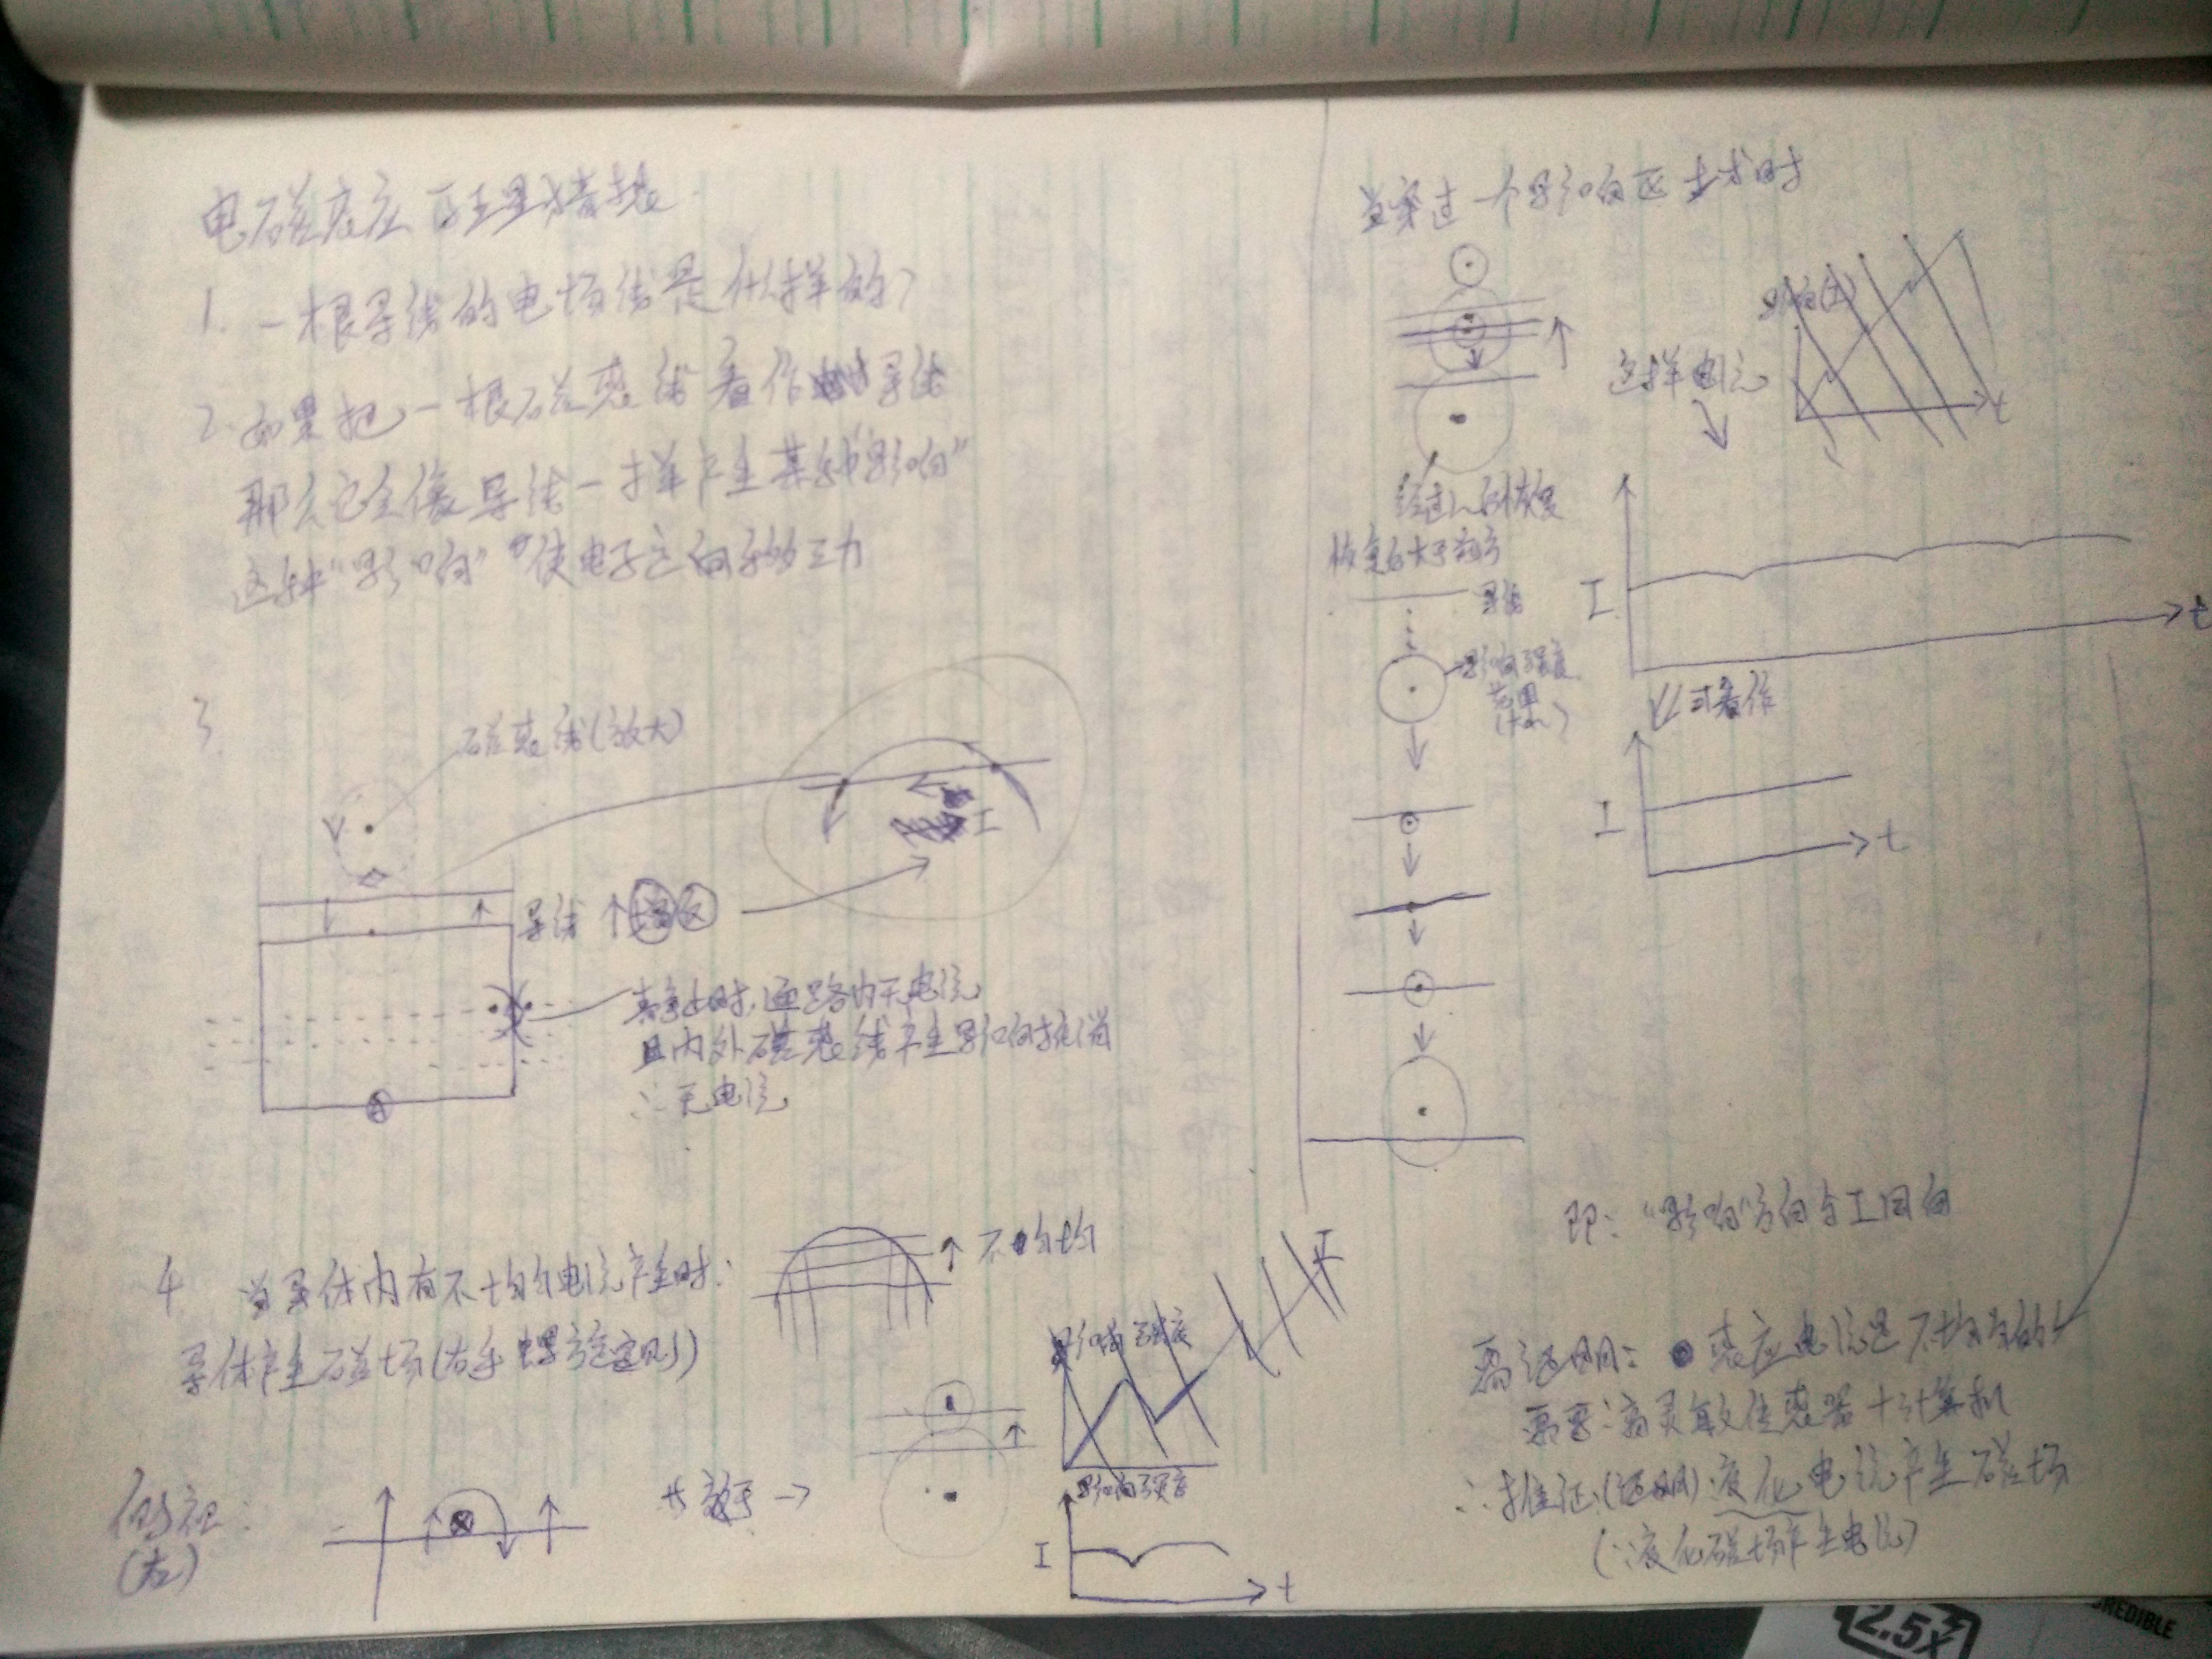 电磁感应
1. 一根导线的电场线是什么样的?
2. 如果把一根磁感线看作导线
那么它会像导线一样产生某种"影响"
这种"影响"使电子定向移动
3.
磁感线(放大)
I
导线
静止时,通路内无电流
且内外磁感线产生影响抵消
∴无电流
4 当导体内有不均匀电流产生时:
不均匀
导体产生磁场(右手螺旋定则)
影响强度
影响强度
I
t
(左)
当穿过一个影响区域时
影响
t
这样电流
I
t
导线
影响强度
范围
可看作
I
t
即:"影响"方向与I同向
需证明: 感应电流是不均匀的
需要:高灵敏传感器+计算机
∴推证(证明)变化电流产生磁场
(∵变化磁场产生电流)
2.5X